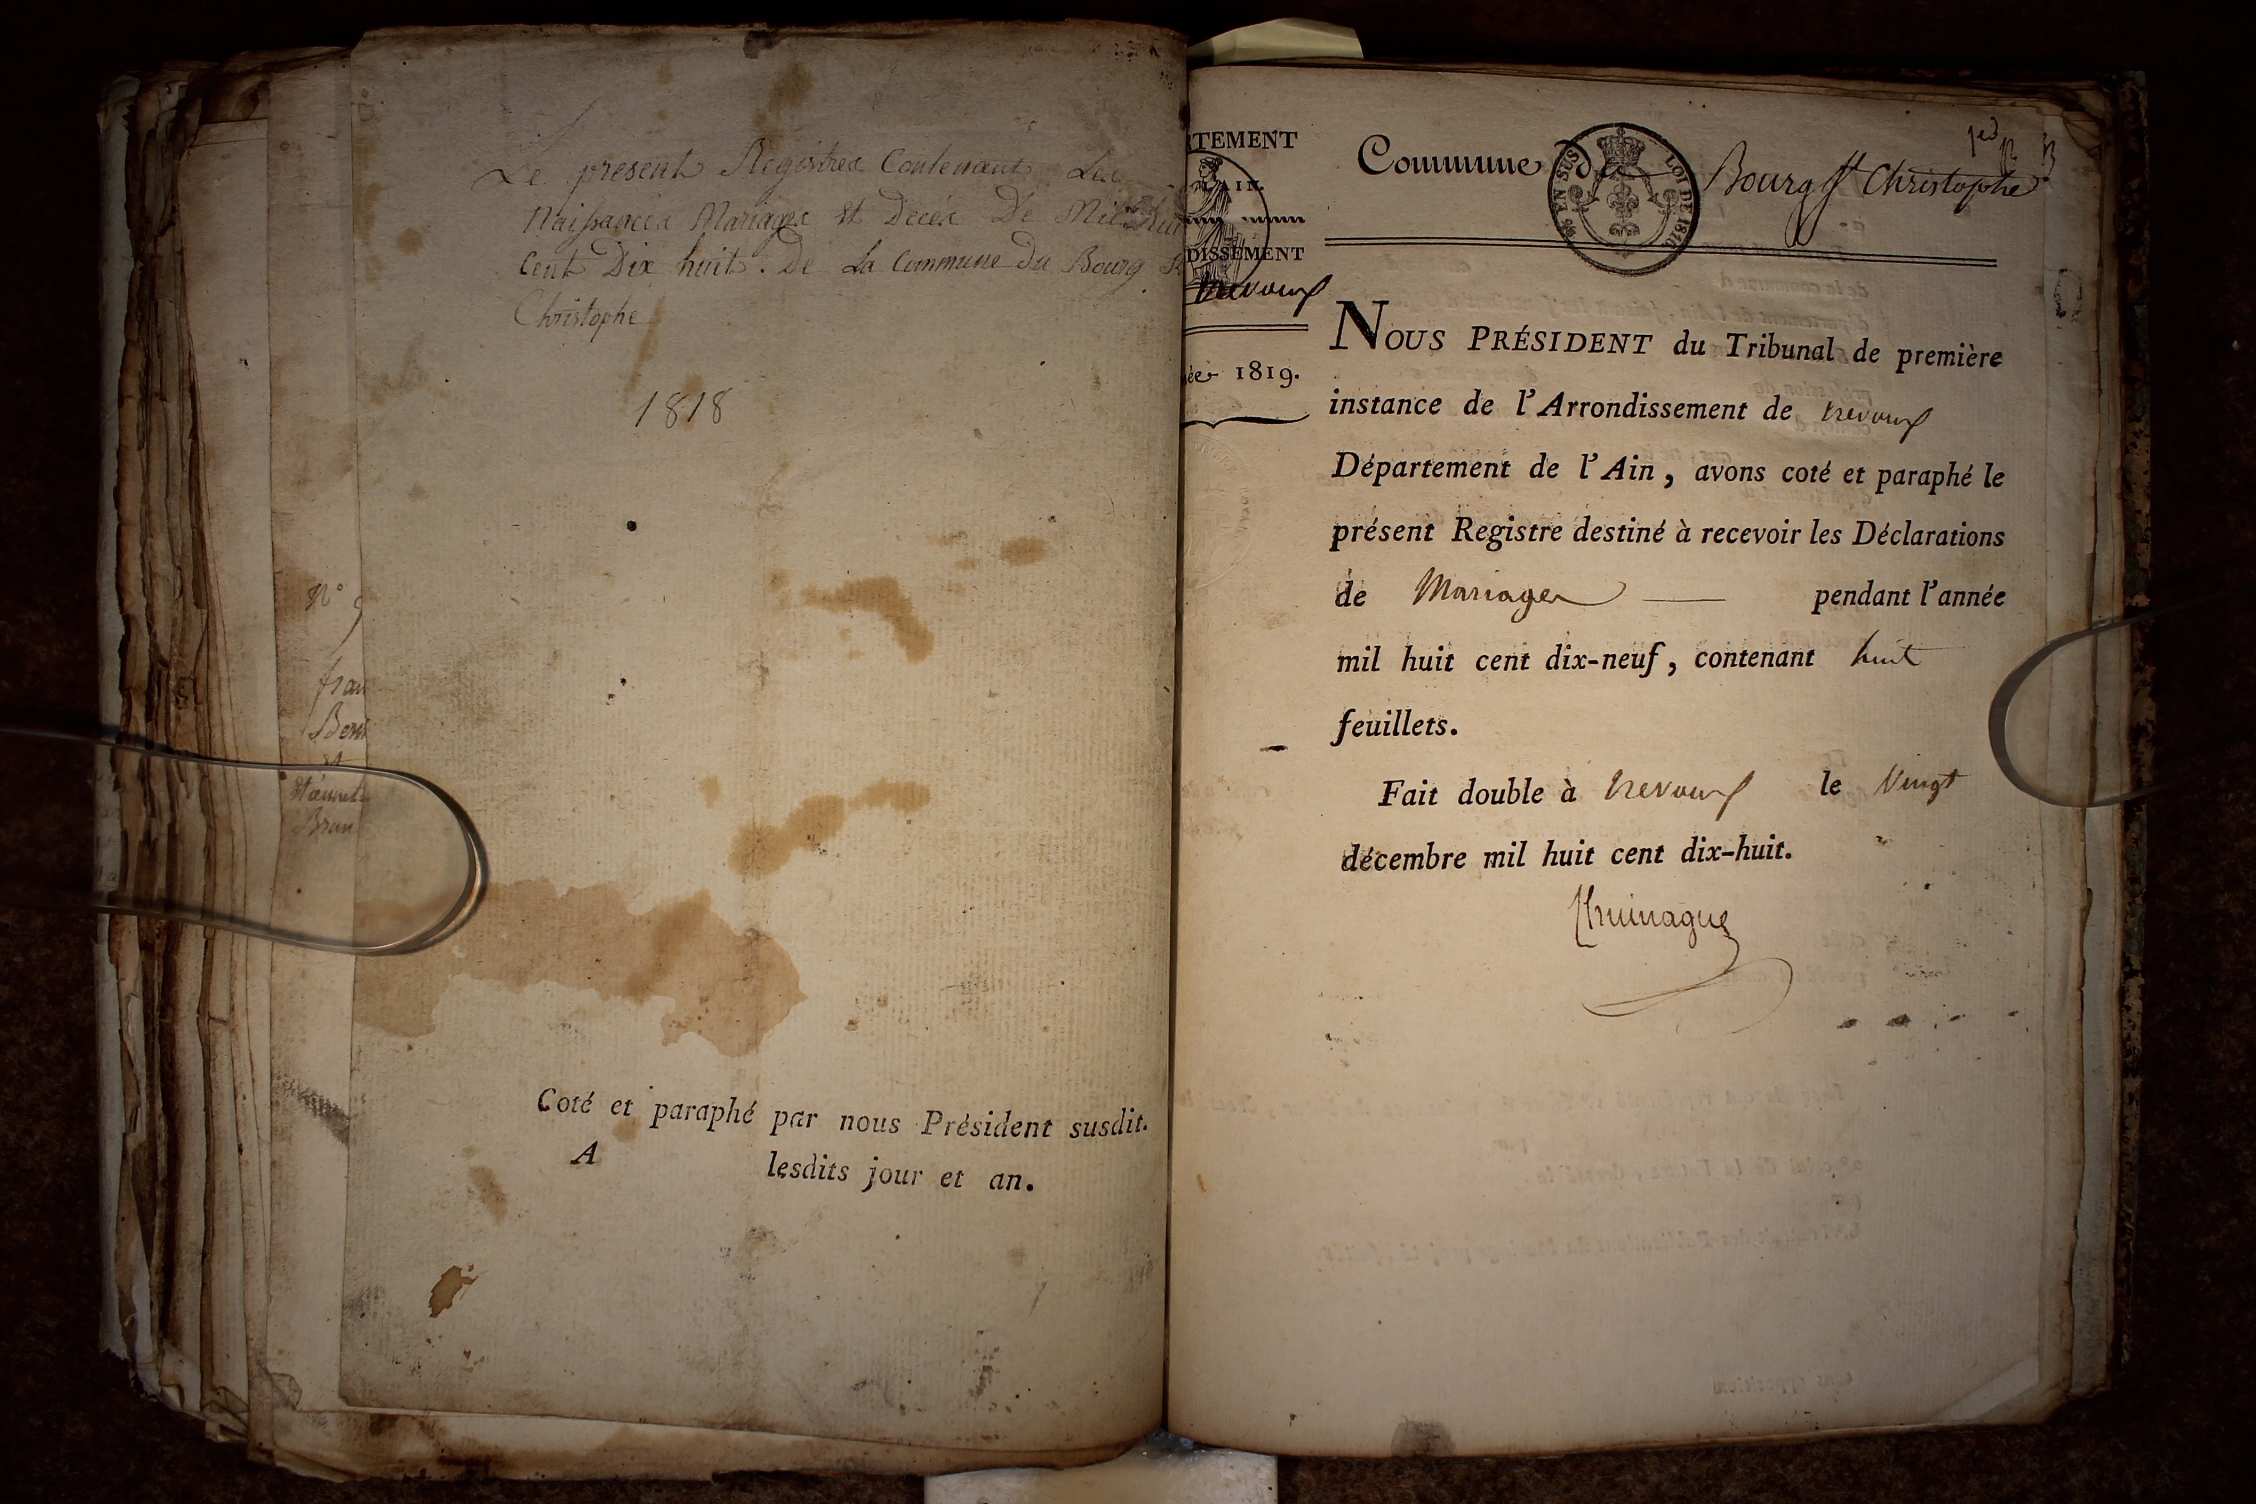 Le present Registres Contenant Les
Naissances Mariages et Decés De Mil huit
Cent Dix huit. De La Commune Du Bourg St
Christophe
1818
N° 9
fran
Ben
et
Brun
Coté et paraphé par nous Président susdit.
A lesdits jour et an.
RTEMENT
AIN.
DISSEMENT
trevoux
née 1819.
1er
Commune de Bourg St Christophe
EN SUS
LOI DE 1816
NOUS PRÉSIDENT du Tribunal de première
instance de l'Arrondissement de trevoux
Département de l'Ain, avons coté et paraphé le
présent Registre destiné à recevoir les Déclarations
de Mariages — pendant l'année
mil huit cent dix-neuf, contenant huit
feuillets.
Fait double à trevoux le Vingt
décembre mil huit cent dix-huit.